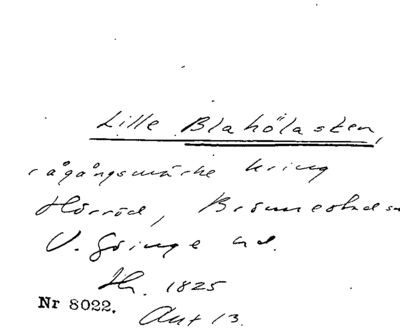 Lille Blahölasten,
rågångsmärke kring
Hörröd, Brönnestads
V. Göinge hd.
Hh. 1825
Nr 8022.
Akt 13.